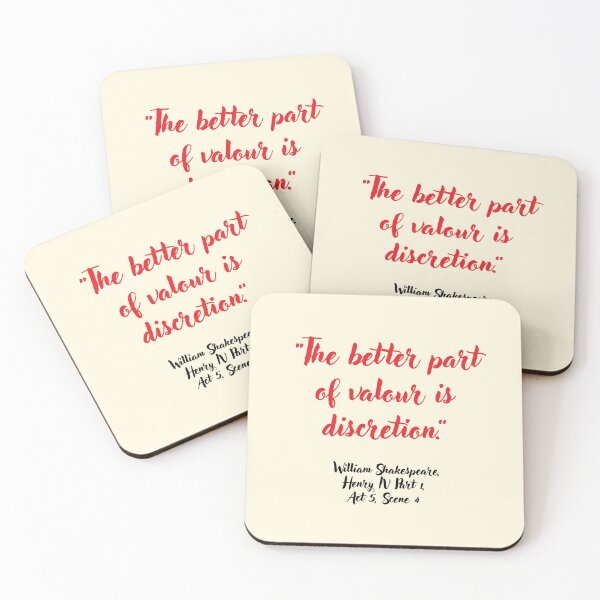 "The better part
of valour is
"The better part
of valour is
discretion."
William Shakespeare,
"The better part
of valour is
discretion."
William Shakespeare
Henry, IV Part
Act 5, Scene
"The better part
of valour is
discretion."
William Shakespeare,
Henry, IV Part 1,
Act 5, Scene 4